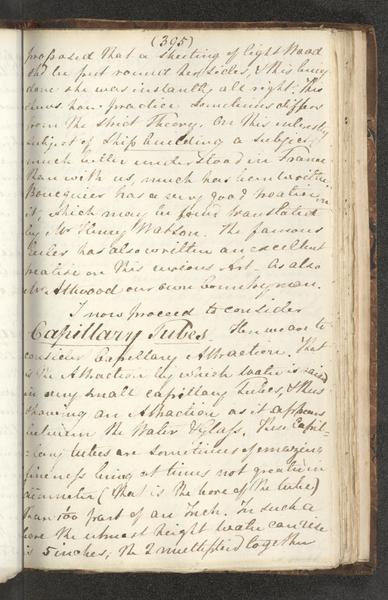 (395)
proposed that a sheeting of light Wood
be put round her sides, & this being
done she was instantly all right. This
shows how practice sometimes differs
from the strict Theory. On this
subject of Ship building a subject
much better understood in France
than with us, much has been written.
Bouguier has a very good treatise on
it, which may be found translated
by Mr Henry Watson. The famous
Euler has also written an excellent
treatise on this curious Art. As also
Mr. Attwood our own Countryman.
I now proceed to consider
Capillary Tubes. Here we are to
consider Capillary Attraction. That
is the Attraction by which water is raised
in very small capillary Tubes, & thus
showing an Attraction as it appears
between the Water & Glass. These Capil=
=lary tubes are sometimes of amazing
fineness being at times not greater in
diameter (that is the bore of the tube)
than 1/100 part of an Inch. In such a
bore the utmost height water can rise
is 5 inches; the 2 multiplied together